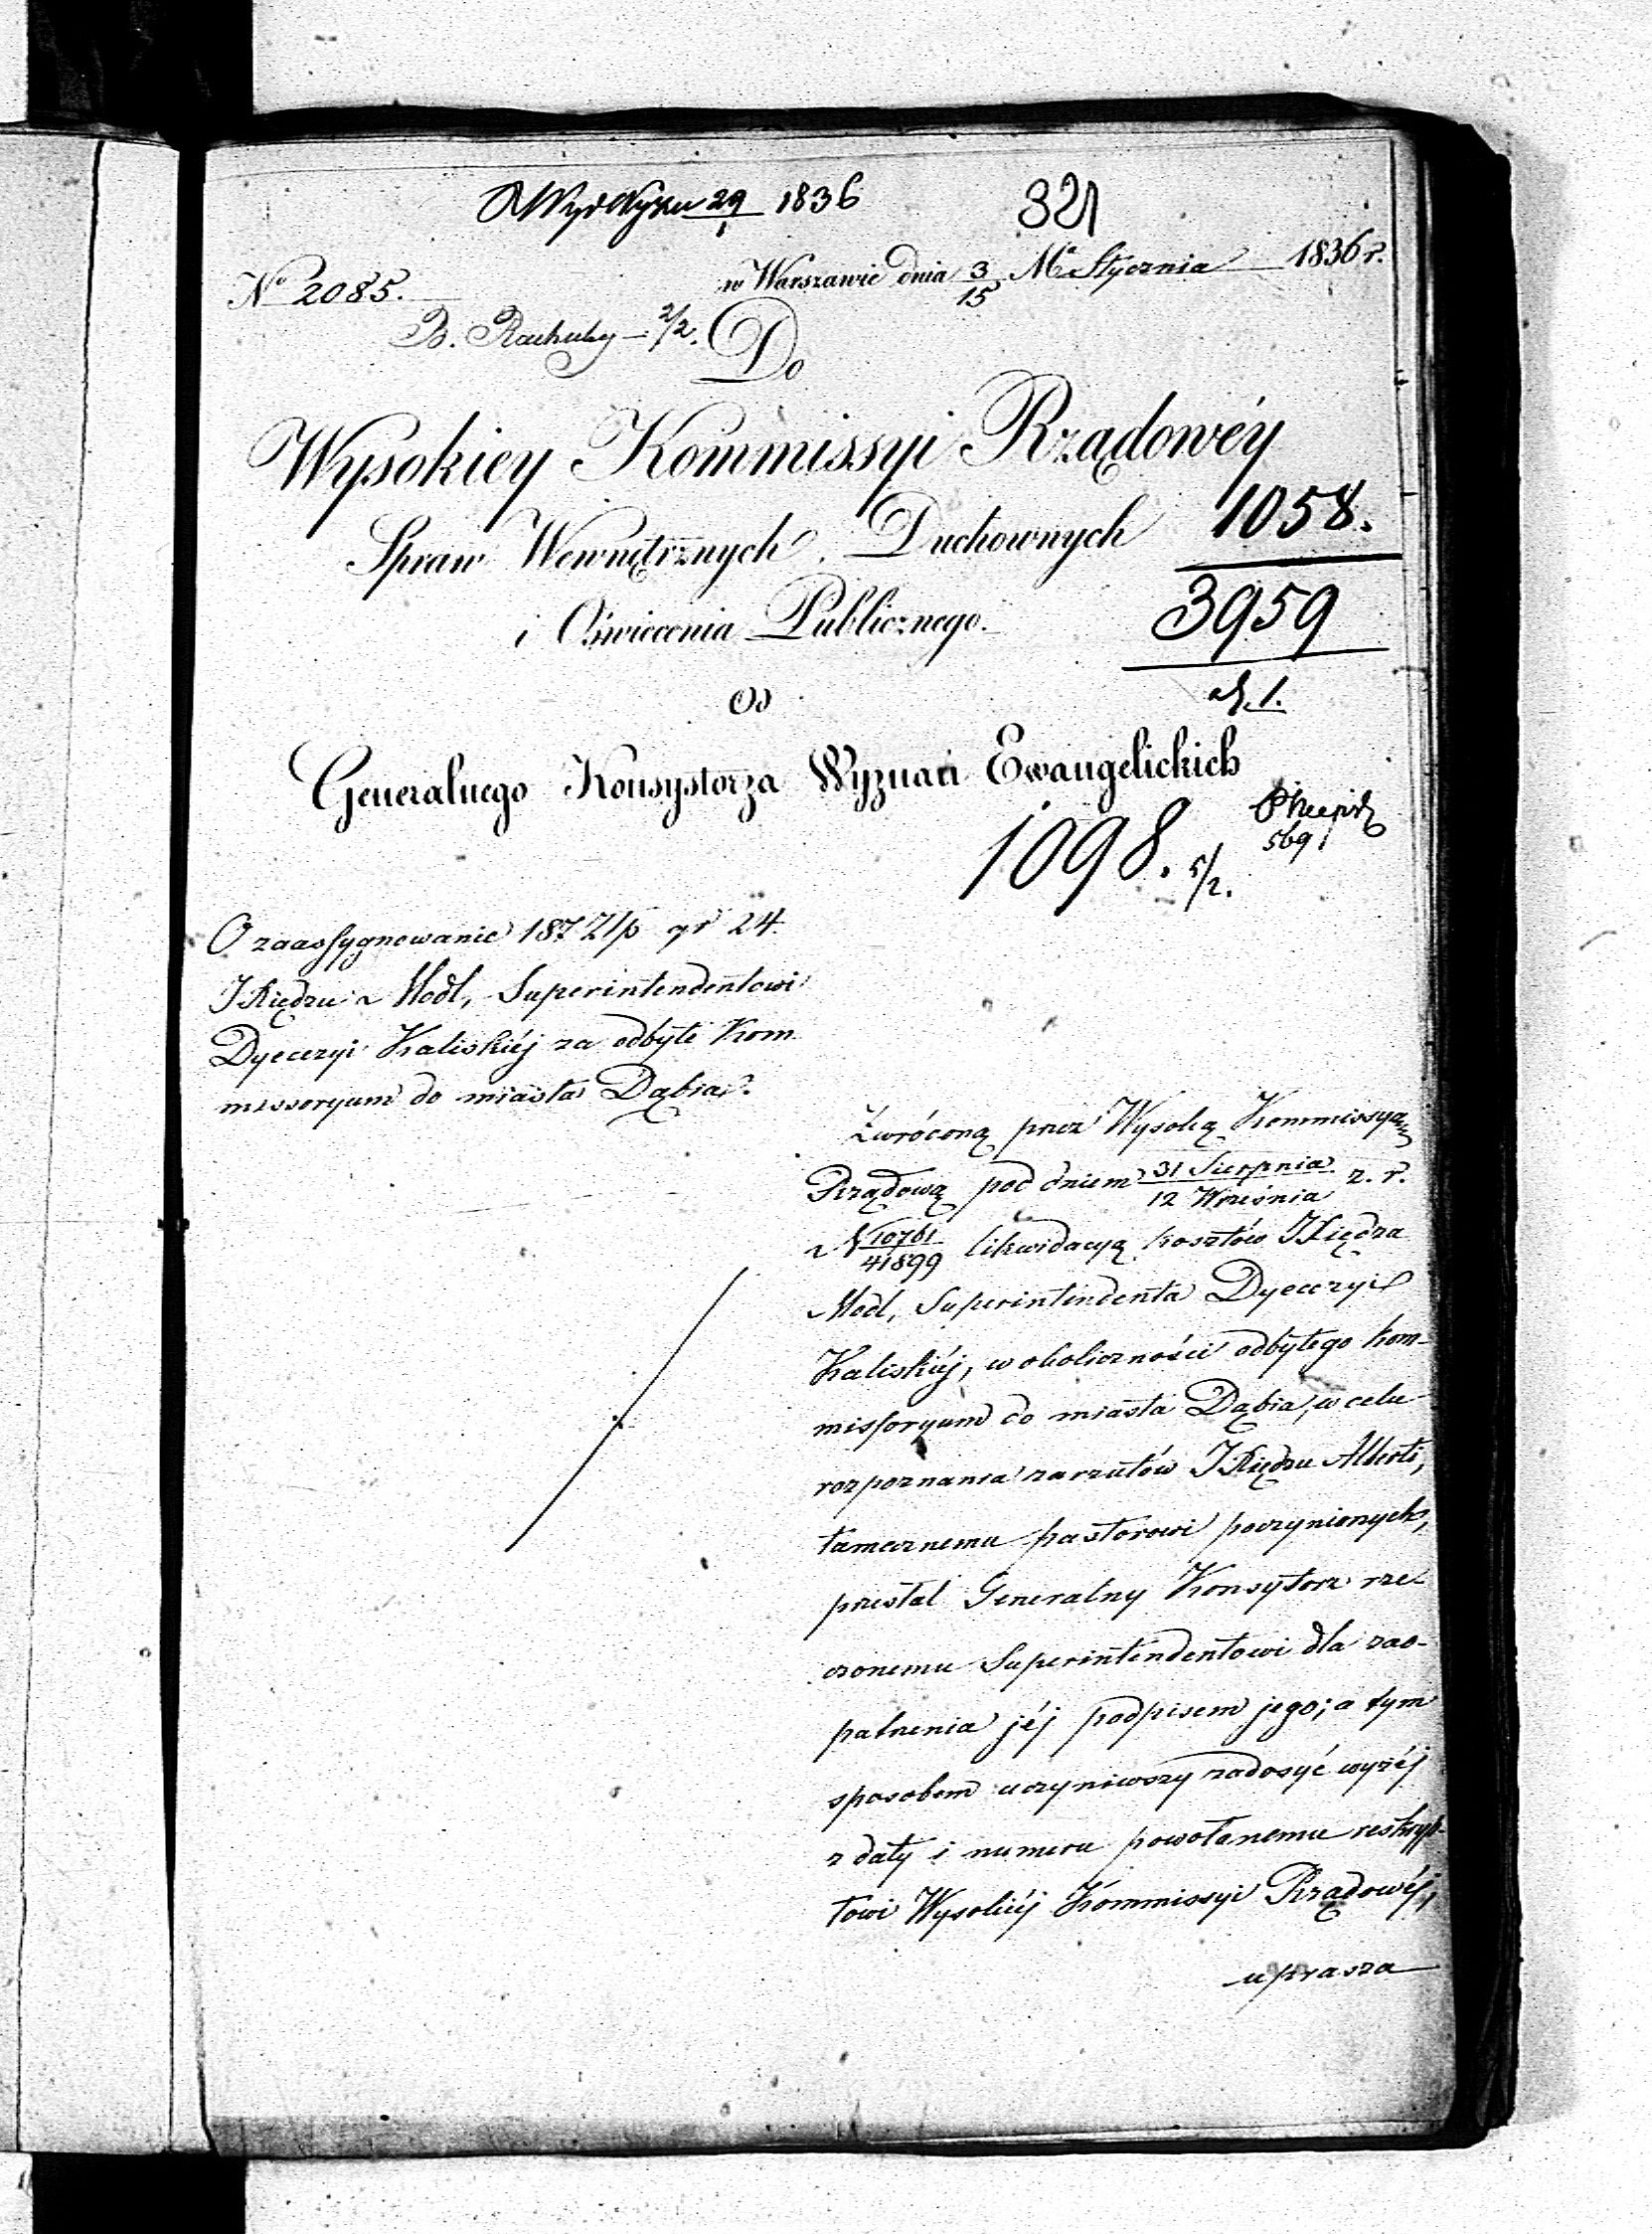 29 1836
321
w Warszawie dnia 3/15 Ma Stycznia 1836 r.
No 2085.
B. Rachuby 2/2.
Do
Wysokiey Kommissyi Rządowéy
Spraw Wewnętrznych, Duchownych
1058.
i Oświecenia Publicznego.
3959
Od
Generalnego Konsystorza Wyznań Ewangelickich
569
1098. 5/2.
O zaassygnowanie 187 Złp gr 24.
JXiędzu Modl, Superintendentowi
Dyecezyi Kaliskiéj za odbyte Kom
missoryum do miasta Dąbia.
Zwróconą przez Wysoką Kommissyą
Rządową pod dniem 31 Sierpnia/12 Września z. r.
N 10761/41899 likwidacyą kosztów JXiędza
Modl, Superintendenta Dyecezyi
Kaliskiéj, w okoliczności odbytego kom-
missoryum do miasta Dąbia, w celu
rozpoznania zarzutów JXiędzu Alberti,
tamecznemu pastorowi poczynionych,
przesłał Generalny Konsystorz rze-
czonemu Superintendentowi dla zao-
patrzenia jéj podpisem jego; a tym
sposobem uczyniwszy zadosyć wyżéj
z daty i numeru powołanemu reskryp-
towi Wysokiéj Kommissyi Rządowéj,
uprasza